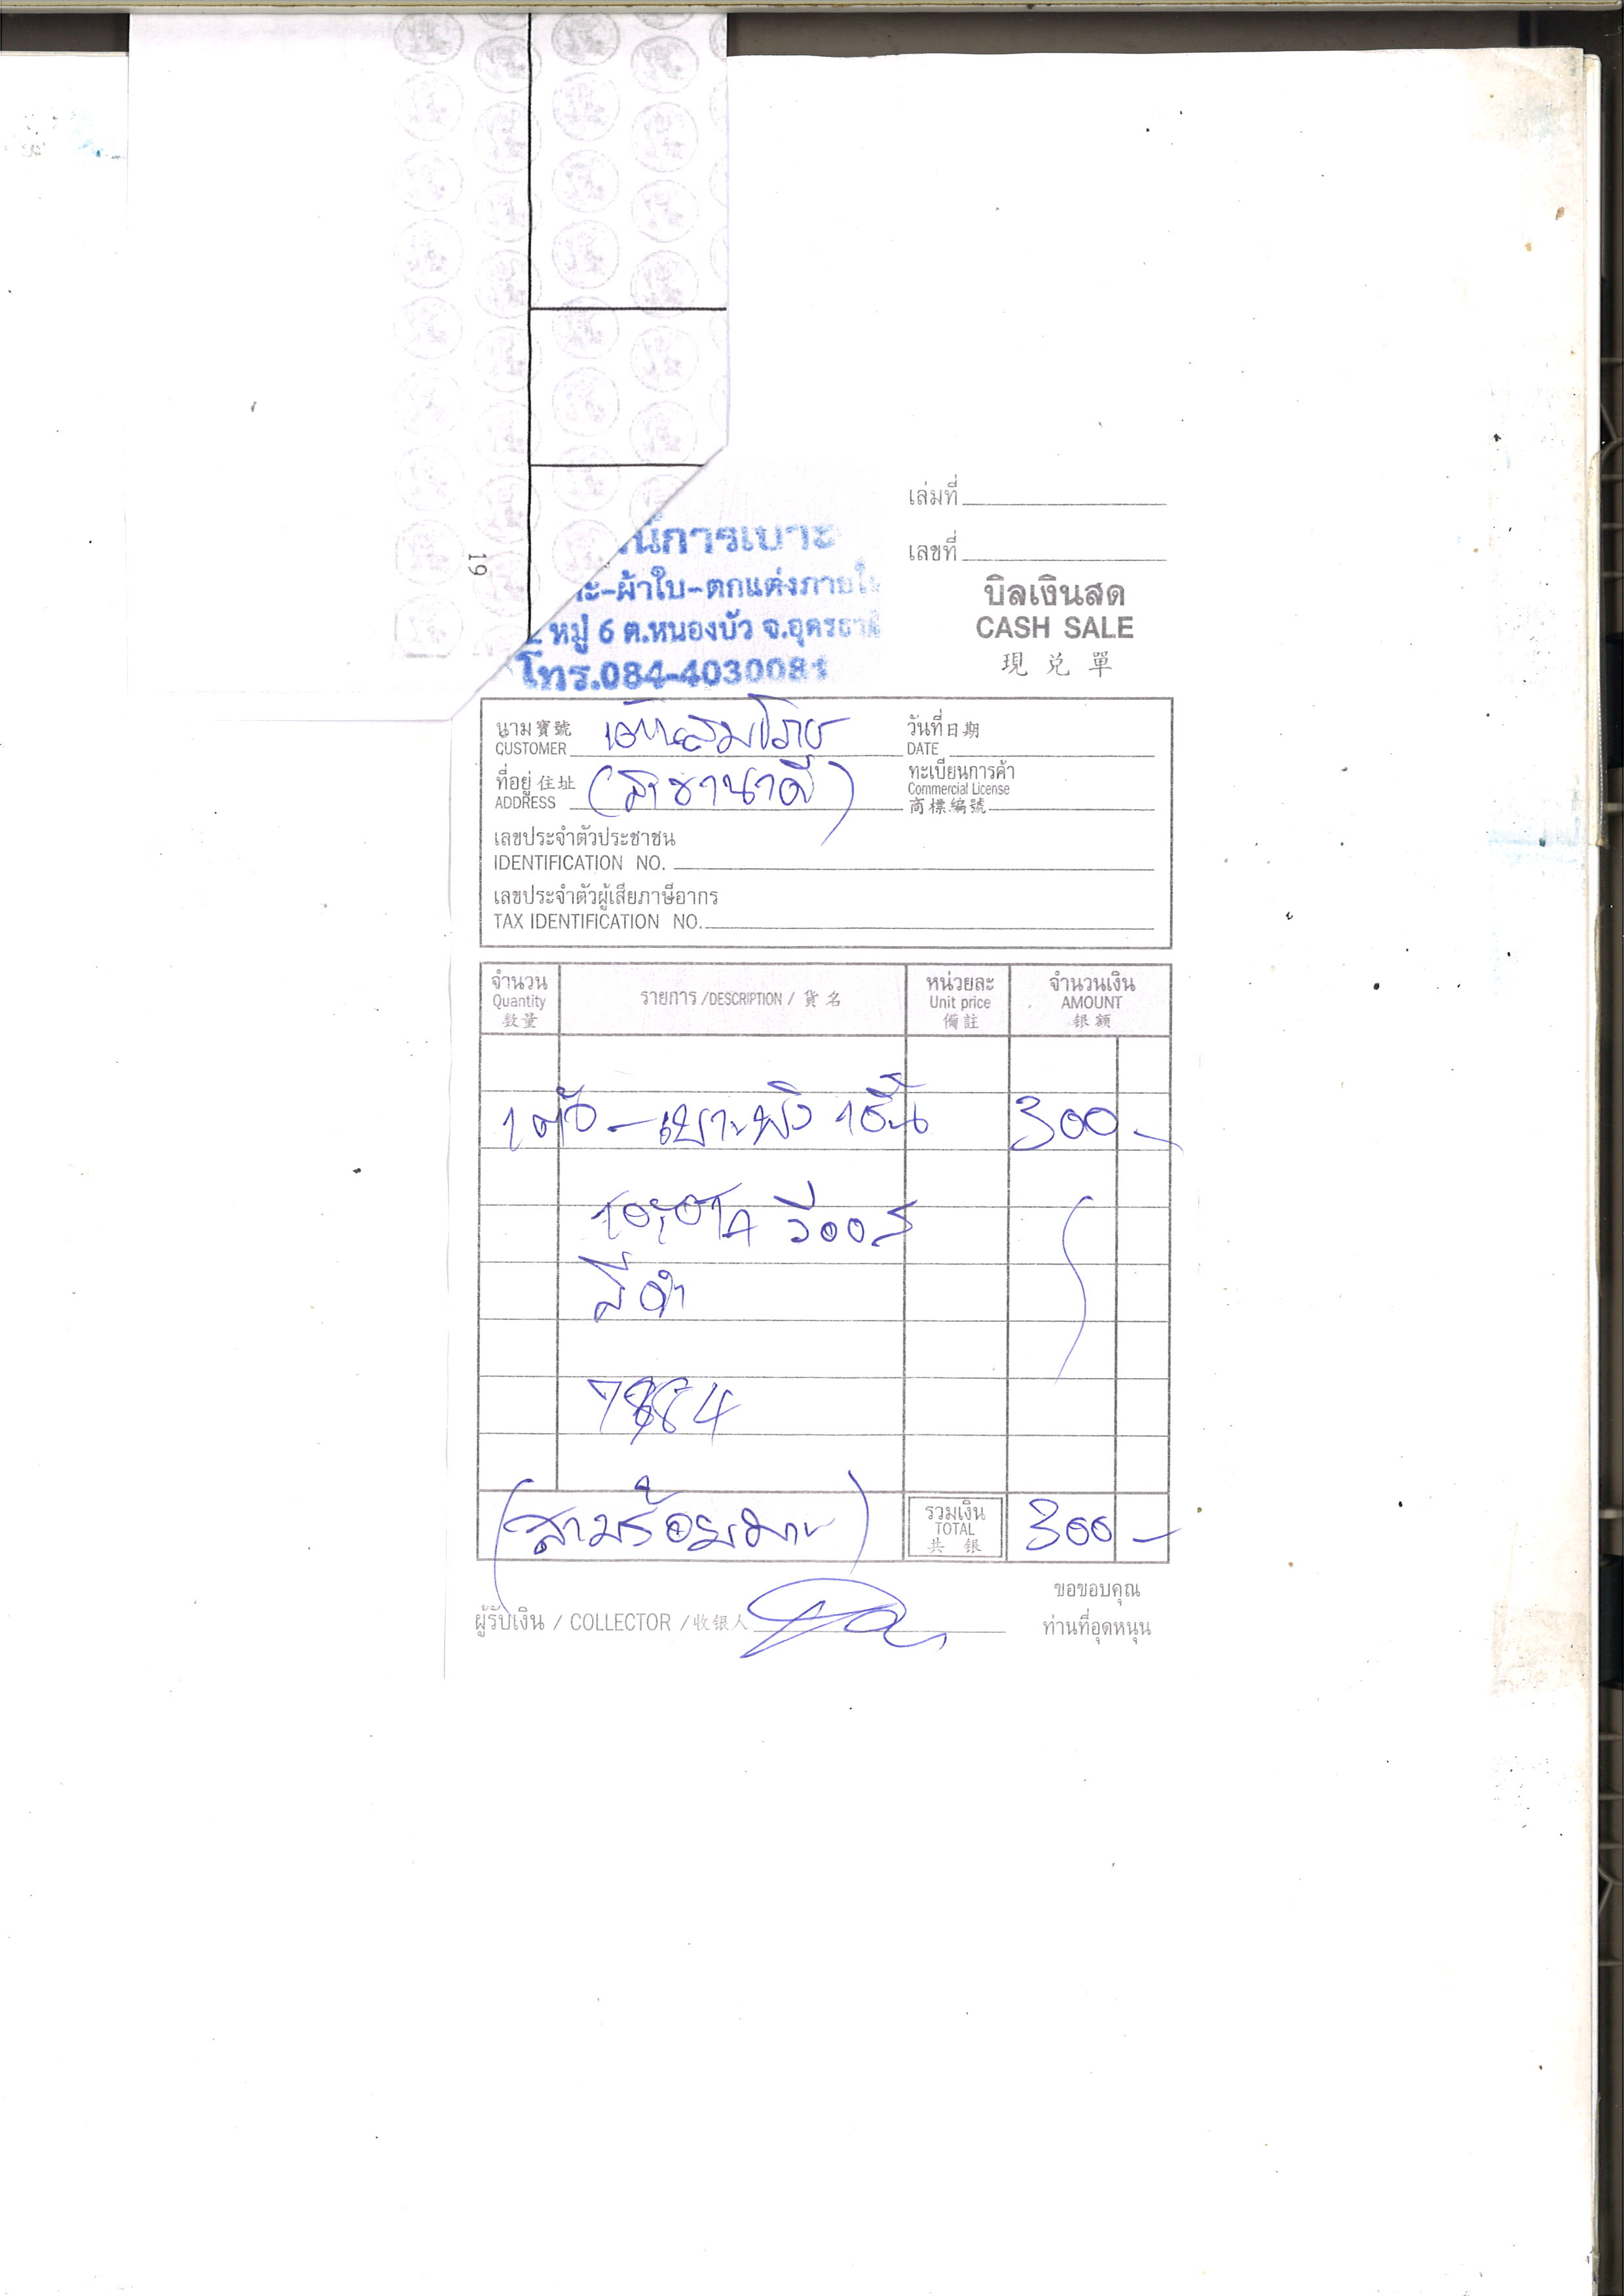 19
นีการเบาะ
าะ-ผ้าใบ-ตกแต่งภายใน
หมู่ 6 ต.หนองบัว จ.อุดรธานี
โทร.084-4030081
เล่มที่
เลขที่
บิลเงินสด
CASH SALE
現 兌 單
นาม寶號
CUSTOMER
วันที่日期
DATE
ที่อยู่ 住址 (สาขานาดี)
ADDRESS
ทะเบียนการค้า
Commercial License
商標編號
เลขประจำตัวประชาชน
IDENTIFICATION NO.
เลขประจำตัวผู้เสียภาษีอากร
TAX IDENTIFICATION NO.
จำนวน
Quantity
数量
รายการ /DESCRIPTION / 貨名
หน่วยละ
Unit price
備註
จำนวนเงิน
AMOUNT
银額
1 ตัว - เบาะพิง 1ชิ้น 300 -
วีออส
สีดำ
7884
(สามร้อยบาท)
รวมเงิน
TOTAL
共 银
300 -
ผู้รับเงิน / COLLECTOR /收银人
ขอขอบคุณ
ท่านที่อุดหนุน